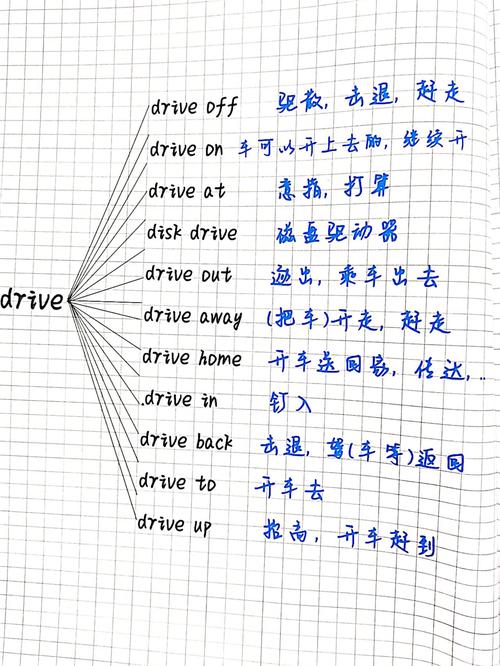 drive off 驱散, 击退, 赶走
drive on 车可以开上去的, 继续开
drive at 意指, 打算
disk drive 磁盘驱动器
drive out 逐出, 乘车出去
drive
drive away (把车)开走, 赶走
drive home 开车送回家, 传达,..
drive in 钉入
drive back 击退, 驾(车等)返回
drive to 开车去
drive up 抬高, 开车赶到